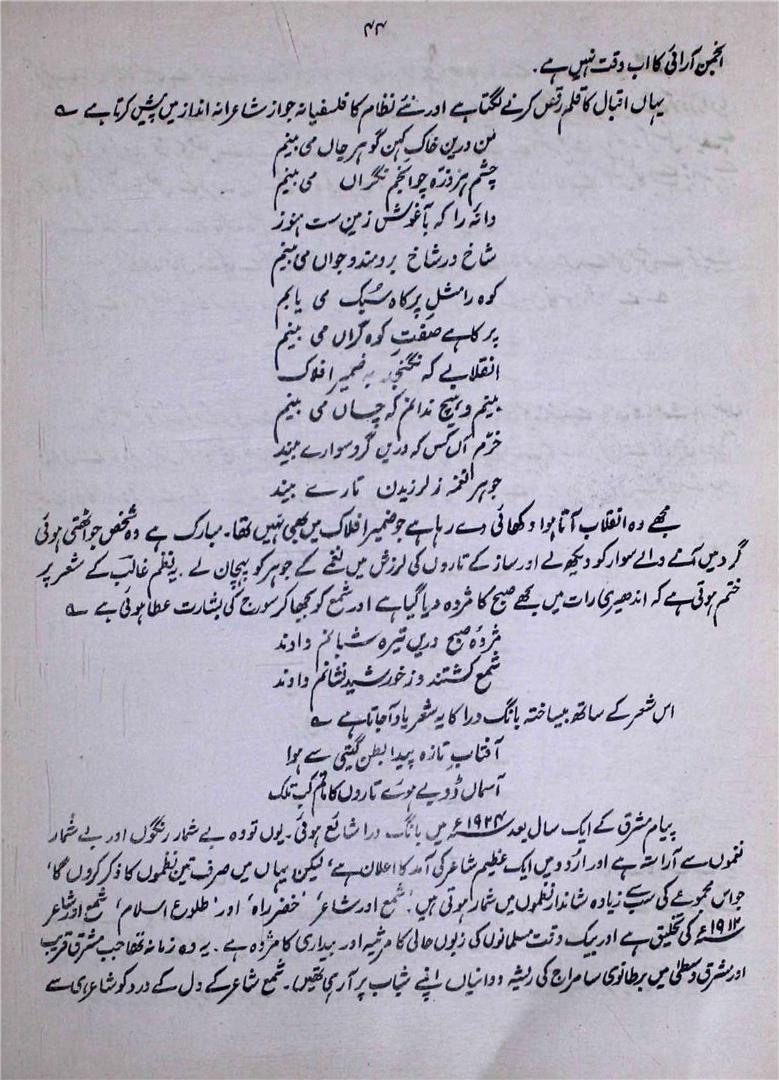 ۴۴
انجمن آرائی کا اب وقت نہیں ہے۔
یہاں اقبال کا قلم رقص کرنے لگتا ہے اور نئے نظام کا فلسفیانہ جواز شاعرانہ انداز میں پیش کرتا ہے ؎
من درین خاکِ کہن گوہر جاں می بینم
چشم ہر ذرّہ چو انجم نگراں می بینم
دانہ را کہ بآغوش زمین ست ہنوز
شاخ در شاخ برومند و جواں می بینم
کوہ را مثلِ پرِ کاہ سُبک می یابم
پرِ کاہے صفتِ کوہ گراں می بینم
انقلابے کہ نگنجد بہ ضمیرِ افلاک
بینم و ہیچ ندانم کہ چساں می بینم
خرّم آں کس کہ دریں گرد سوارے بیند
جوہرِ نغمہ ز لرزیدنِ تارے بیند
مجھے وہ انقلاب آتا ہوا دکھائی دے رہا ہے جو ضمیر افلاک میں بھی نہیں تھا۔ مبارک ہے وہ شخص جو اٹھتی ہوئی
گرد میں آنے والے سوار کو دیکھ لے اور ساز کے تاروں کی لرزش میں نغمے کے جوہر کو پہچان لے۔ یہ نظم غالبؔ کے شعر پر
ختم ہوتی ہے کہ اندھیری رات میں مجھے صبح کا مژدہ دیا گیا ہے اور شمع کو بجھا کر سورج کی بشارت عطا ہوئی ہے ؎
مژدۂ صبح دریں تیرہ شبانم دادند
شمع کشتند و ز خورشید نشانم دادند
اس شعر کے ساتھ بیساختہ بانگ درا کا یہ شعر یاد آجاتا ہے ؎
آفتابِ تازہ پیدا بطن گیتی سے ہوا
آسماں ڈوبے ہوئے تاروں کا ماتم کب تلک
پیام مشرق کے ایک سال بعد ۱۹۲۴ء میں بانگ درا شائع ہوئی۔ یوں تو وہ بے شمار رنگوں اور بے شمار
نغموں سے آراستہ ہے اور اردو میں ایک عظیم شاعر کی آمد کا اعلان ہے، لیکن یہاں میں صرف تین نظموں کا ذکر کروں گا،
جو اس مجموعے کی سب سے زیادہ شاندار نظموں میں شمار ہوتی ہیں۔ ‘شمع اور شاعر’ ‘خضر راہ’ اور ‘طلوع اسلام’ شمع اور شاعر
۱۹۱۲ء کی تخلیق ہے اور بیک وقت مسلمانوں کی زبوں حالی کا مرثیہ اور بیداری کا مژدہ ہے۔ یہ وہ زمانہ تھا جب مشرق قریب
اور مشرق وسطیٰ میں برطانوی سامراج کی ریشہ دوانیاں اپنے شباب پر آرہی تھیں)۔ شمع شاعر کے دل کے درد کو شاعری سے